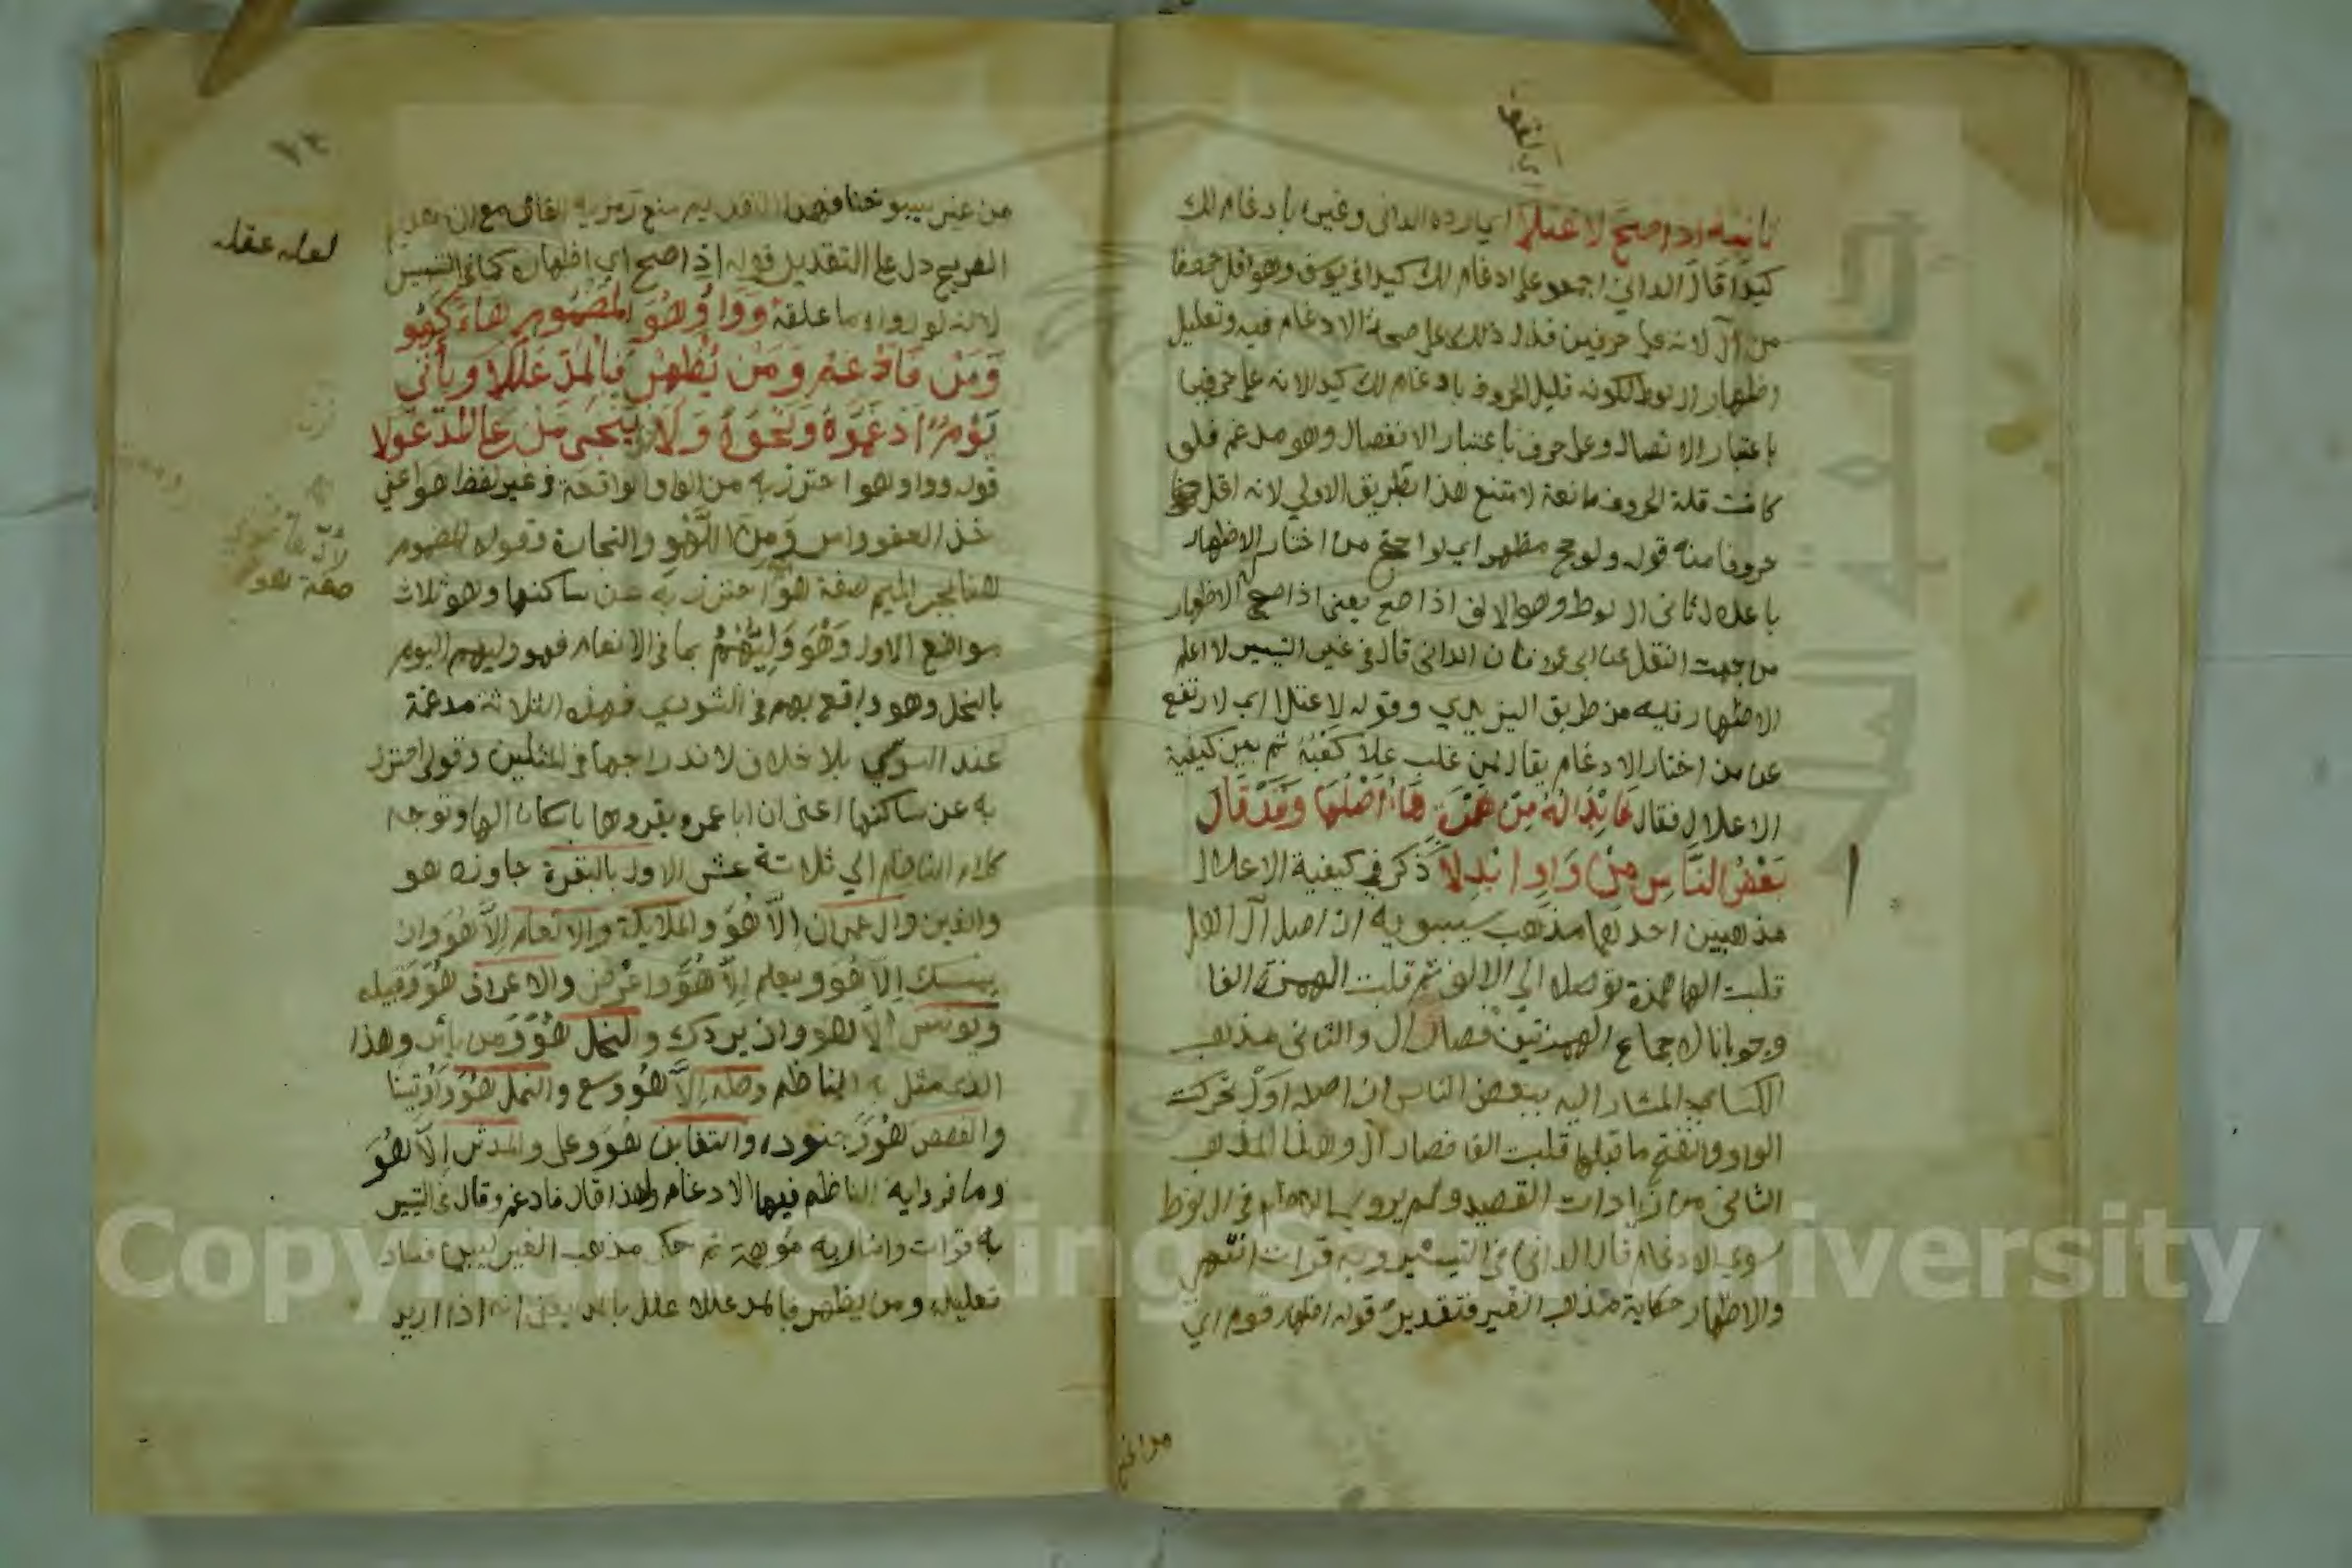 ثانيه اذا صح لاعتلا اي رده الداني وغيره بادغام لك
كيدا قال الداني اجمعوا على ادغام لك كيدا في يوسف وهو اقل حروفا
من آل لانه على حرفين فدل ذلك على صحة الادغام فيه وتعليل
اظهار ال لوط لكونه قليل الحروف بادغام لك كيدا لانه على حرفين
باعتبار الاتصال وعلى حرف باعتبار الانفصال وهو مدغم فلو
كانت قلة الحروف مانعة لامتنع هذا بطريق الاولي لانه اقل
حروفا منه قوله ولو حج مظهر اي لو احتج من اختار الاظهار
باعلال ثاني ال لوط وهو الالف اذا صح يعني اذا صح الاظهار
من جهت النقل عن ابي عمرو فان الداني قال في غير التيسير لا اعلم
الاظهار فيه من طريق اليزيدي وقوله لاعتلا اي لارتفع
على من اختار الادغام يقال لمن غلب علا كعبه ثم بين كيفية
الاعلال فقال فابداله من همزة هاء اصلها وقد قال
بعض الناس من واو ابدلا ذكر في كيفية الاعلال
مذهبين احدهما مذهب سيبويه ان اصل آل اهل
قلبت الها همزة توصلا الي الالف ثم قلبت الهمزة الفا
وجوبا لاجتماع الهمزتين فصار ال والثاني مذهب
الكسائي المشار اليه ببعض الناس ان اصله اول تحركت
الواو وانفتح ما قبلها قلبت الفا فصار آل وهذا المذهب
الثاني من زيادات القصيد ولم يرو في ال لوط
سوي الادغام قال الداني في التيسير وبه قرات انتهى
والاظهار حكاية مذهب الغير فتقدير قوله اظهار قوم اي
من غير
١٣
من غير
الغير مع دل على التقدير قوله اذا صح اي اظهاره كما في التيسير
لانه لو رواه ما علقه وواو هو المضموم هاء كهو
ومن فادغم ومن يظهر فبالمد عللا وياتي
يوم ادغموه ونحوه ولا فرق ينجي من على المد عولا
قوله وواو هو احترز به من الواو الواقعة في غير لفظ هو اعني
خذ العفو وامر ومن اللهو والتجارة وقوله المضموم
هاء بجر الميم صفة هو احترز به عن ساكنها وهو ثلاث
مواضع الاول وهو وليهم بما في الانعام فهو وليهم اليوم
بالنحل وهو واقع بهم في الشوري فهذه الثلاثة مدغمة
عند السوسي بلا خلاف لاندراجها في المثلين وقولي احترز
به عن ساكنها اعني ان ابا عمرو يقروها باسكان الها وتوجه
كلام الناظم الي ثلاثة عشر الاول بالبقرة جاوزه هو
والذين وال عمران الا هو والملايكة والانعام الا هو وان
يمسسك الا هو ويعلم الا هو واعرض والاعراف هو وقبيله
ويونس الا هو وان يردك والنحل هو ومن يامر وهذا
الذي مثل به الناظم وطه الا هو وسع والنمل هو واوتينا
والقصص هو وجنوده والتغابن هو وعلى والمدثر الا هو
وما الناظم فيها الا الادغام ولهذا قال فادغم وقال في التيسير
به قرات ثم حكى مذهب الغير ليبين فساد
تعليله ومن يظهر فبالمد عللا علل بالمد يعني انه اذا اريد
لعله عقله
صفة هو